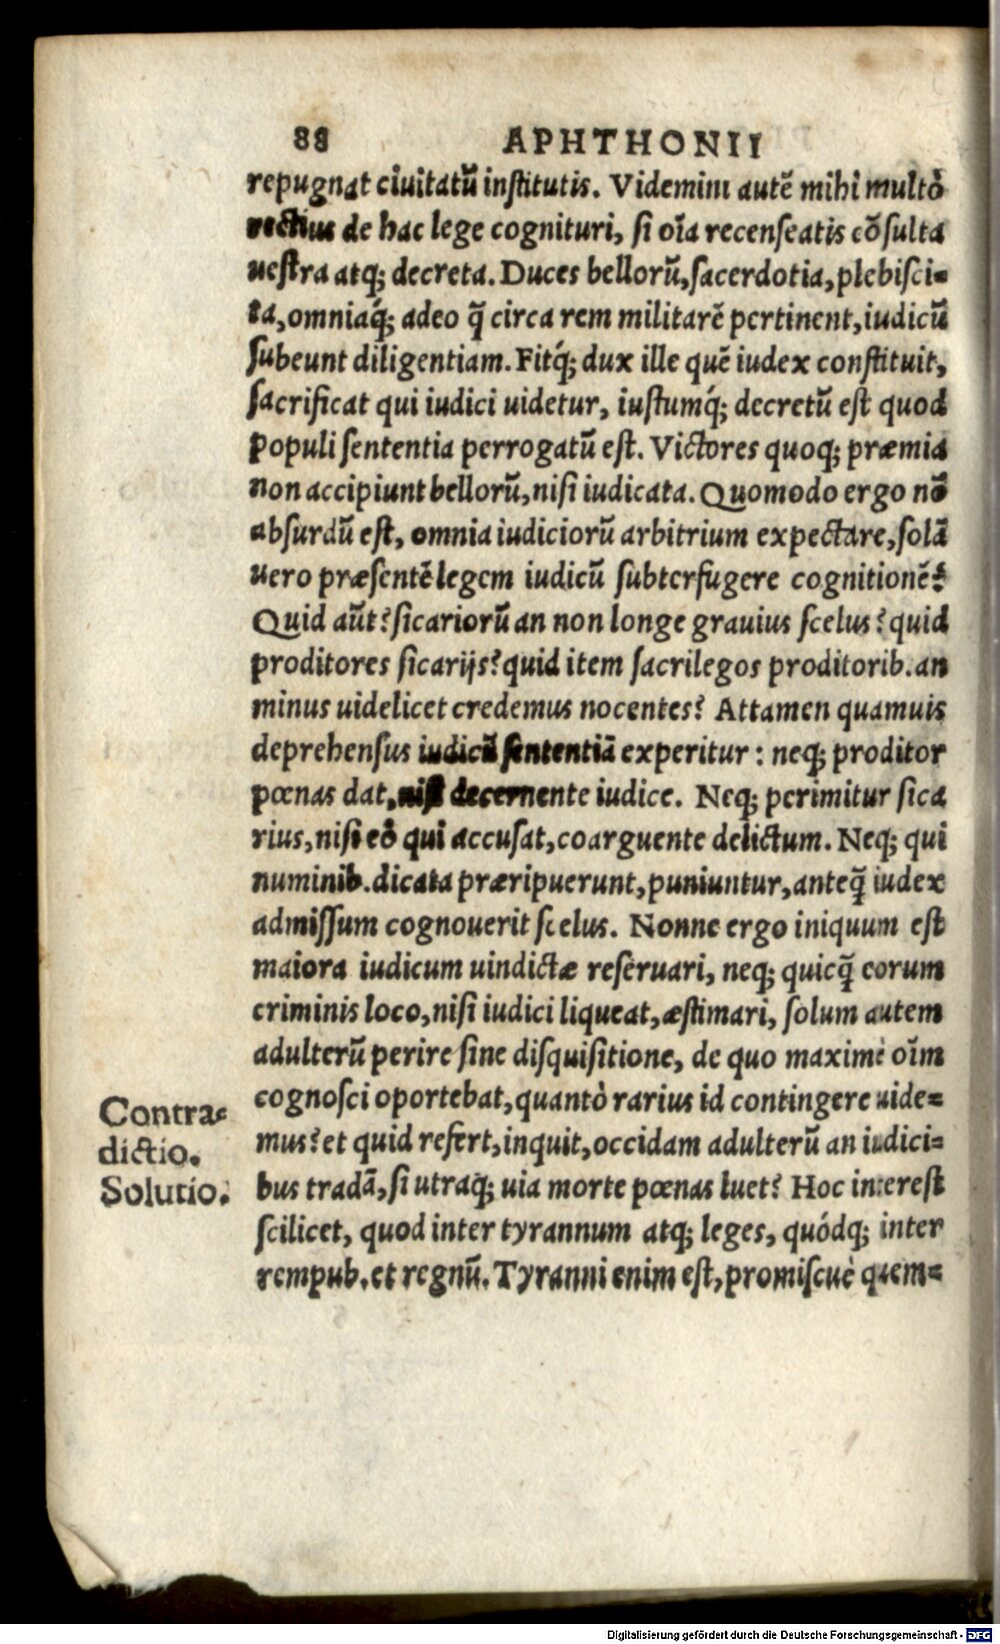 88 APHTHONII
repugnat ciuitatũ inſtitutis. Videmini autẽ mihi multò
rectius de hac lege cognituri, ſi oĩa recenſeatis cõſulta
ueſtra atq; decreta. Duces bellorũ, ſacerdotia, plebiſci-
ta, omniaq́; adeo q̃ circa rem militarẽ pertinent, iudicũ
ſubeunt diligentiam. Fitq́; dux ille quẽ iudex conſtituit,
ſacrificat qui iudici uidetur, iuſtumq́; decretũ eſt quod
populi ſententia perrogatũ eſt. Victores quoq; præmia
non accipiunt bellorũ, niſi iudicata. Quomodo ergo nõ
abſurdũ eſt, omnia iudiciorũ arbitrium expectare, ſolã
uero præſentẽ legem iudicũ ſubterfugere cognitionẽ?
Quid aũt? ſicariorũ an non longe grauius ſcelus? quid
proditores ſicarijs? quid item ſacrilegos proditorib. an
minus uidelicet credemus nocentes? Attamen quamuis
deprehenſus iudicũ ſententiã experitur: neq; proditor
pœnas dat, niſi decernente iudice. Neq; perimitur ſica
rius, niſi eò qui accuſat, coarguente delictum. Neq; qui
numinib. dicata præripuerunt, puniuntur, anteq̃ iudex
admiſſum cognouerit ſcelus. Nonne ergo iniquum eſt
maiora iudicum uindictæ reſeruari, neq; quicq̃ eorum
criminis loco, niſi iudici liqueat, æſtimari, ſolum autem
adulterũ perire ſine diſquiſitione, de quo maximè oĩm
cognoſci oportebat, quantò rarius id contingere uide-
mus? et quid refert, inquit, occidam adulterũ an iudici-
bus tradã, ſi utraq; uia morte pœnas luet? Hoc intereſt
ſcilicet, quod inter tyrannum atq; leges, quódq; inter
rempub. et regnũ. Tyranni enim eſt, promiſcuè quem-
Contra-
dictio.
Solutio.
Digitalisierung gefördert durch die Deutsche Forschungsgemeinschaft - DFG